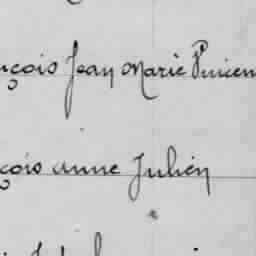 nçois Jean Marie Vincen
çois Anne Julien